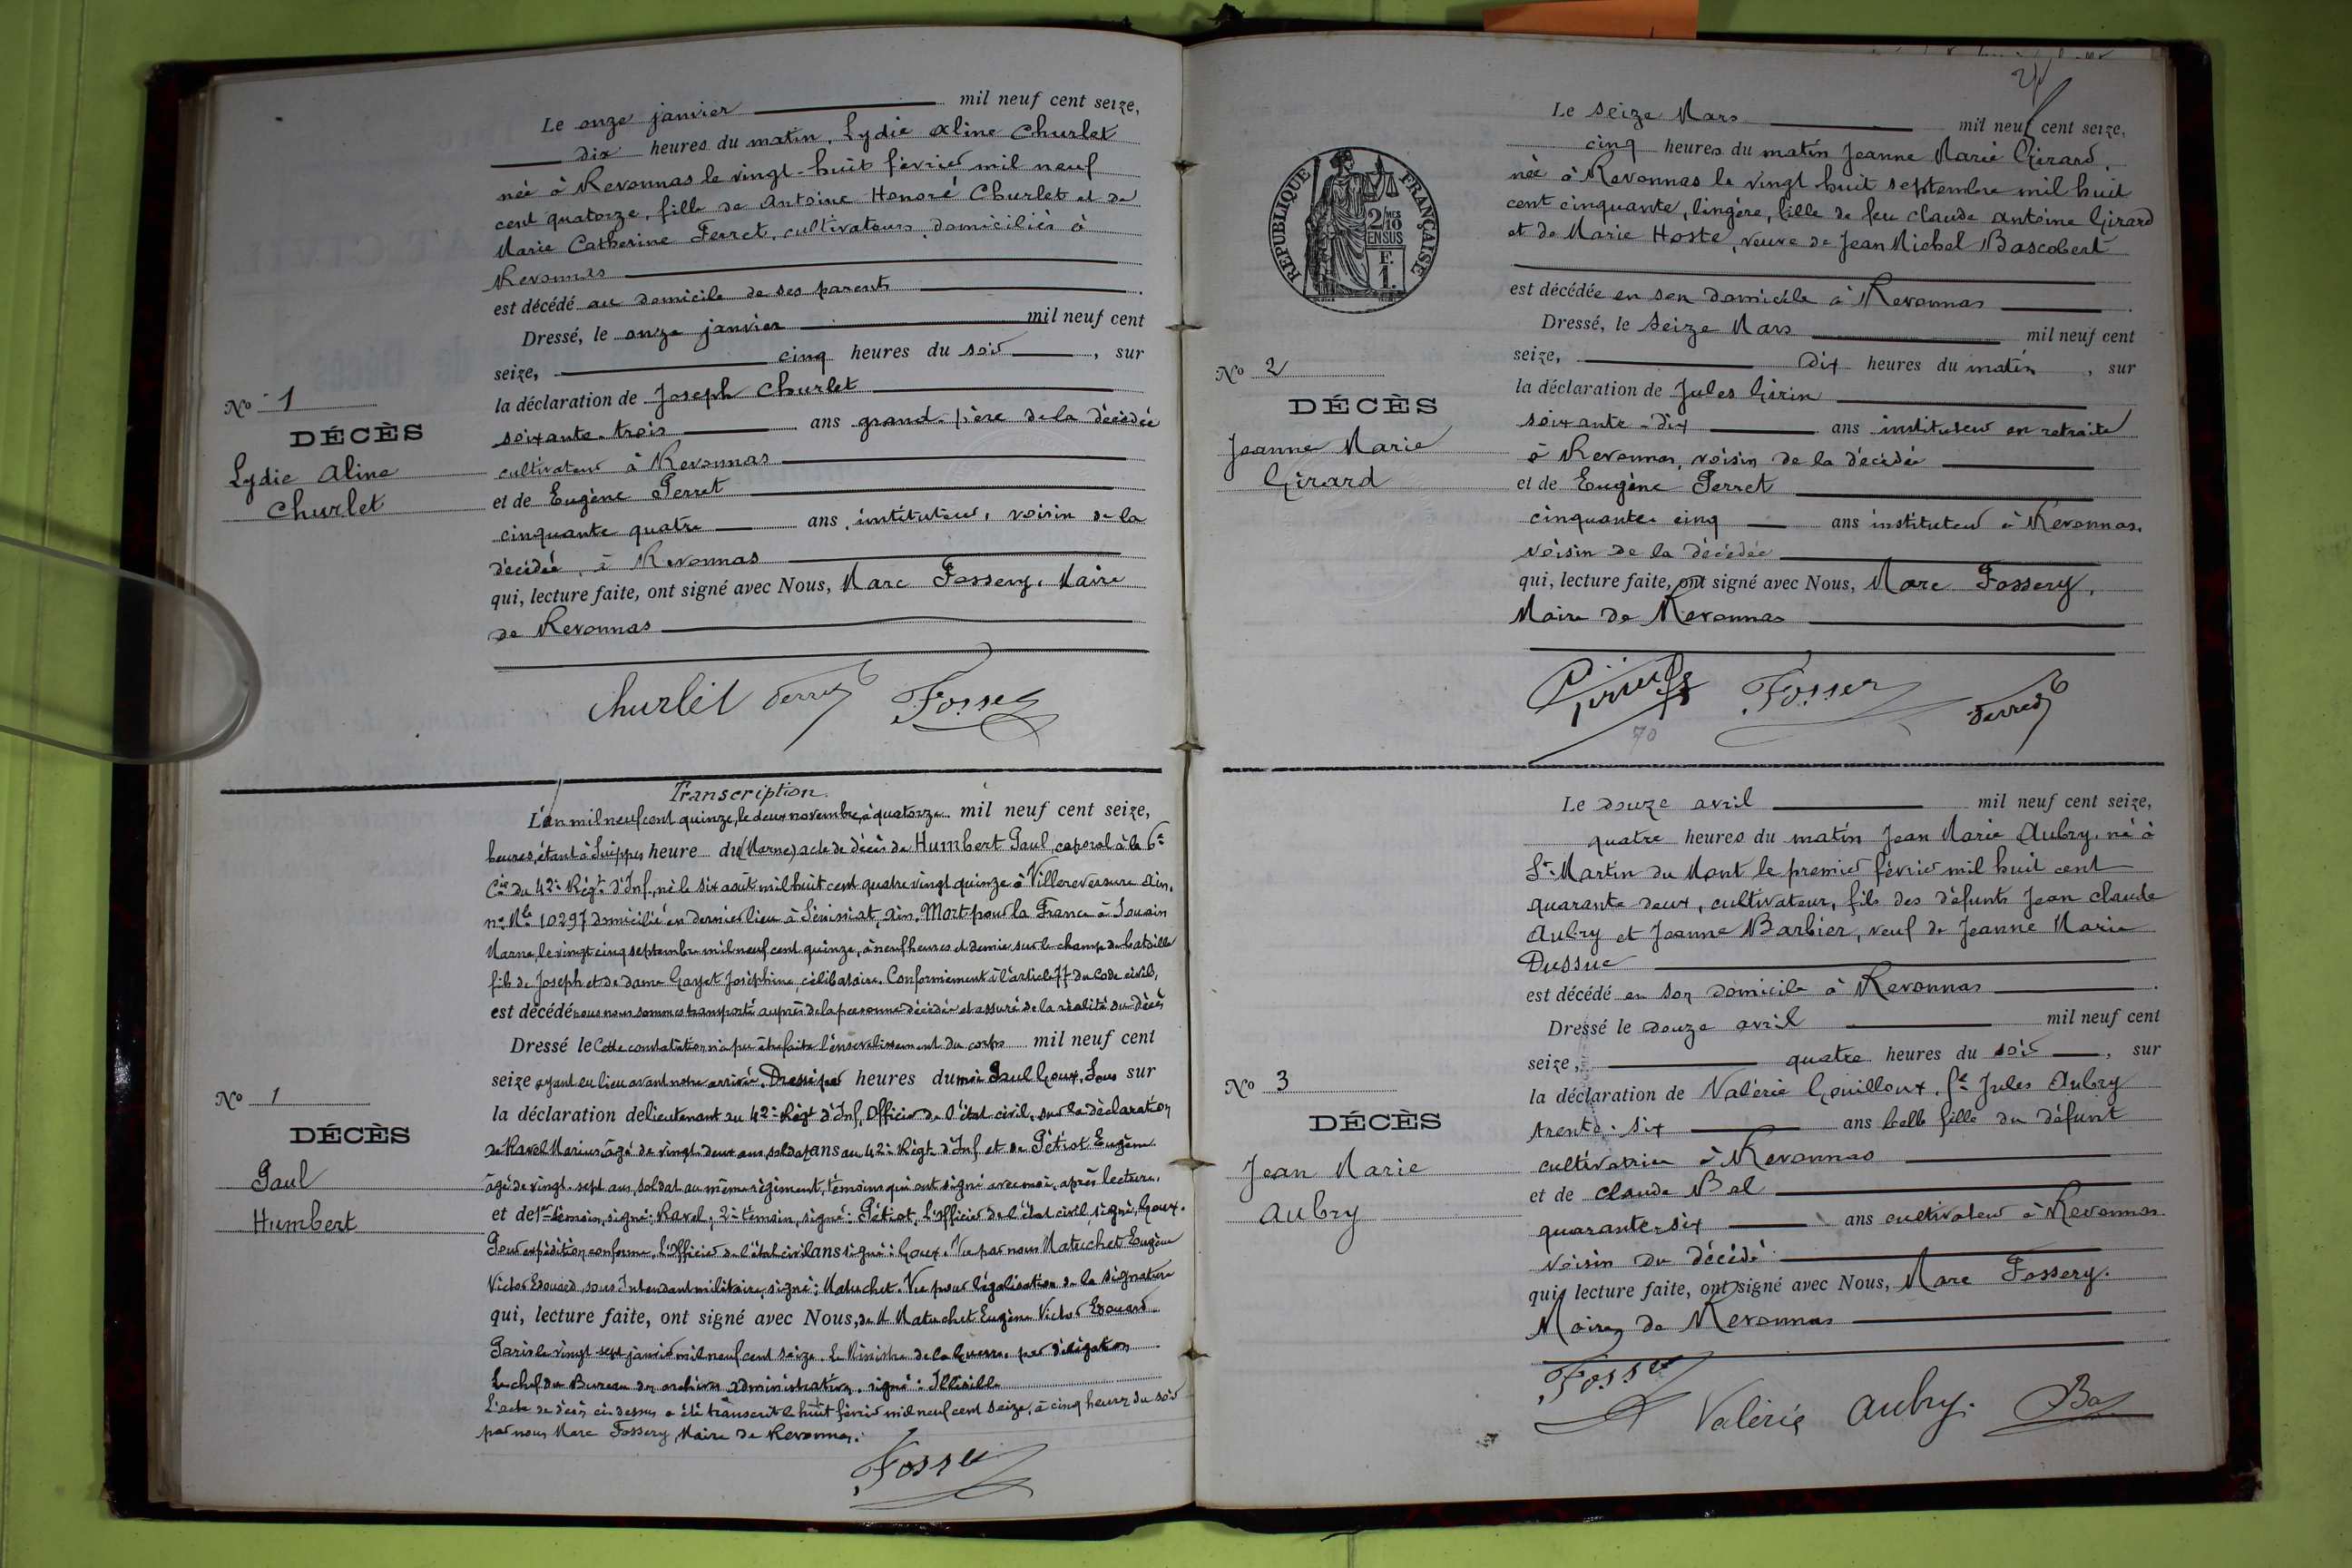 Le onze janvier mil neuf cent seize,
dix heures du matin, Lydie Aline Churlet
née à Revonnas le vingt-huit février mil neuf
cent quatorze, fille de Antoine Honoré Churlet et de
Marie Catherine Ferret, cultivateurs, domiciliés à
Revonnas
est décédé au domicile de ses parents
Dressé, le onze janvier mil neuf cent
seize, cinq heures du soir, sur
la déclaration de Joseph Churlet
soixante-trois ans grand-père de la décédée
cultivateur à Revonnas
et de Eugène Perret
cinquante quatre ans, instituteur, voisin de la
décédée, à Revonnas
qui, lecture faite, ont signé avec Nous, Marc Fossery, Maire
de Revonnas
No 1
DÉCÈS
Lydie Aline
Churlet
Churlet Perret Fossery
Transcription.
L'an mil neuf cent quinze, le deux novembre, à quatorze mil neuf cent seize,
heures, étant à Suippes heure du (Marne) acte de décès de Humbert Paul, caporal à la 6e
Cie du 42e Régt d'Inf, né le six août mil huit cent quatre vingt quinze à Villereversure Ain,
no Mle 10297 domicilié en dernier lieu à Sénissiat, Ain. Mort pour la France à Souain
Marne, le vingt cinq septembre mil neuf cent quinze, à neuf heures et demie, sur le champ de bataille
fils de Joseph et de dame Gayet Joséphine, célibataire. Conformément à l'article 77 du Code civil,
est décédé nous nous sommes transporté auprès de la personne décédée et assuré de la réalité du décès
Dressé le Cette constatation n'a pu être faite l'ensevelissement du corps mil neuf cent
seize ayant eu lieu avant notre arrivée. Dressé par heures du moi Paul Goux, Sous sur
la déclaration de lieutenant au 42e Régt d'Inf, Officier de l'état civil, sur la déclaration
de Ravel Marius âgé de vingt-deux ans, soldat ans au 42e Régt d'Inf et de Pétiot Eugène
âgé de vingt-sept ans, soldat au même régiment, témoins qui ont signé avec moi, après lecture.
et de 1er témoin, signé: Ravel, 2e témoin, signé: Pétiot, L'Officier de l'état civil, signé, Goux.
Pour expédition conforme, L'Officier de l'état civil ans signé: Goux. Vu par nous Matuchet Eugène
Victor Edouard, sous Intendant militaire, signé: Matuchet. Vu pour légalisation de la signature
qui, lecture faite, ont signé avec Nous, de M Matuchet Eugène Victor Edouard
Paris le vingt sept janvier mil neuf cent seize. Le Ministre de la Guerre. par délégation
Le chef du Bureau des archives administratives. signé: Illisible
L'acte de décès ci-dessus a été transcrit le huit février mil neuf cent seize, à cinq heures du soir
par nous Marc Fossery, Maire de Revonnas.
No 1
DÉCÈS
Paul
Humbert
Fossery
Le seize Mars mil neuf cent seize,
cinq heures du matin Jeanne Marie Girard,
née à Revonnas le vingt huit septembre mil huit
cent cinquante, lingère, fille de feu Claude Antoine Girard
et de Marie Hoste, veuve de Jean Michel Bascobert
est décédée en son domicile à Revonnas
Dressé, le seize Mars mil neuf cent
seize, dix heures du matin, sur
la déclaration de Jules Girin
soixante-dix ans instituteur en retraite
à Revonnas, voisin de la décédée
et de Eugène Perret
cinquante cinq ans instituteur à Revonnas,
voisin de la décédée
qui, lecture faite, ont signé avec Nous, Marc Fossery,
Maire de Revonnas
RÉPUBLIQUE FRANÇAISE
2/10 MES
EN SUS
F.
1.
No 2
DÉCÈS
Jeanne Marie
Girard
Fossery Perret
70
Le douze avril mil neuf cent seize,
quatre heures du matin Jean Marie Aubry, né à
St Martin du Mont le premier février mil huit cent
quarante deux, cultivateur, fils des défunts Jean Claude
Aubry et Jeanne Barbier, veuf de Jeanne Marie
Dussuc
est décédé en son domicile à Revonnas
Dressé le douze avril mil neuf cent
seize, quatre heures du soir, sur
la déclaration de Valérie Gouilloux, fe Jules Aubry
trente-six ans belle fille du défunt
cultivatrice à Revonnas
et de Claude Bal
quarante six ans cultivateur à Revonnas
voisin du décédé
qui, lecture faite, ont signé avec Nous, Marc Fossery,
Maire de Revonnas
No 3
DÉCÈS
Jean Marie
Aubry
Fossery
Valérie Aubry. Bal